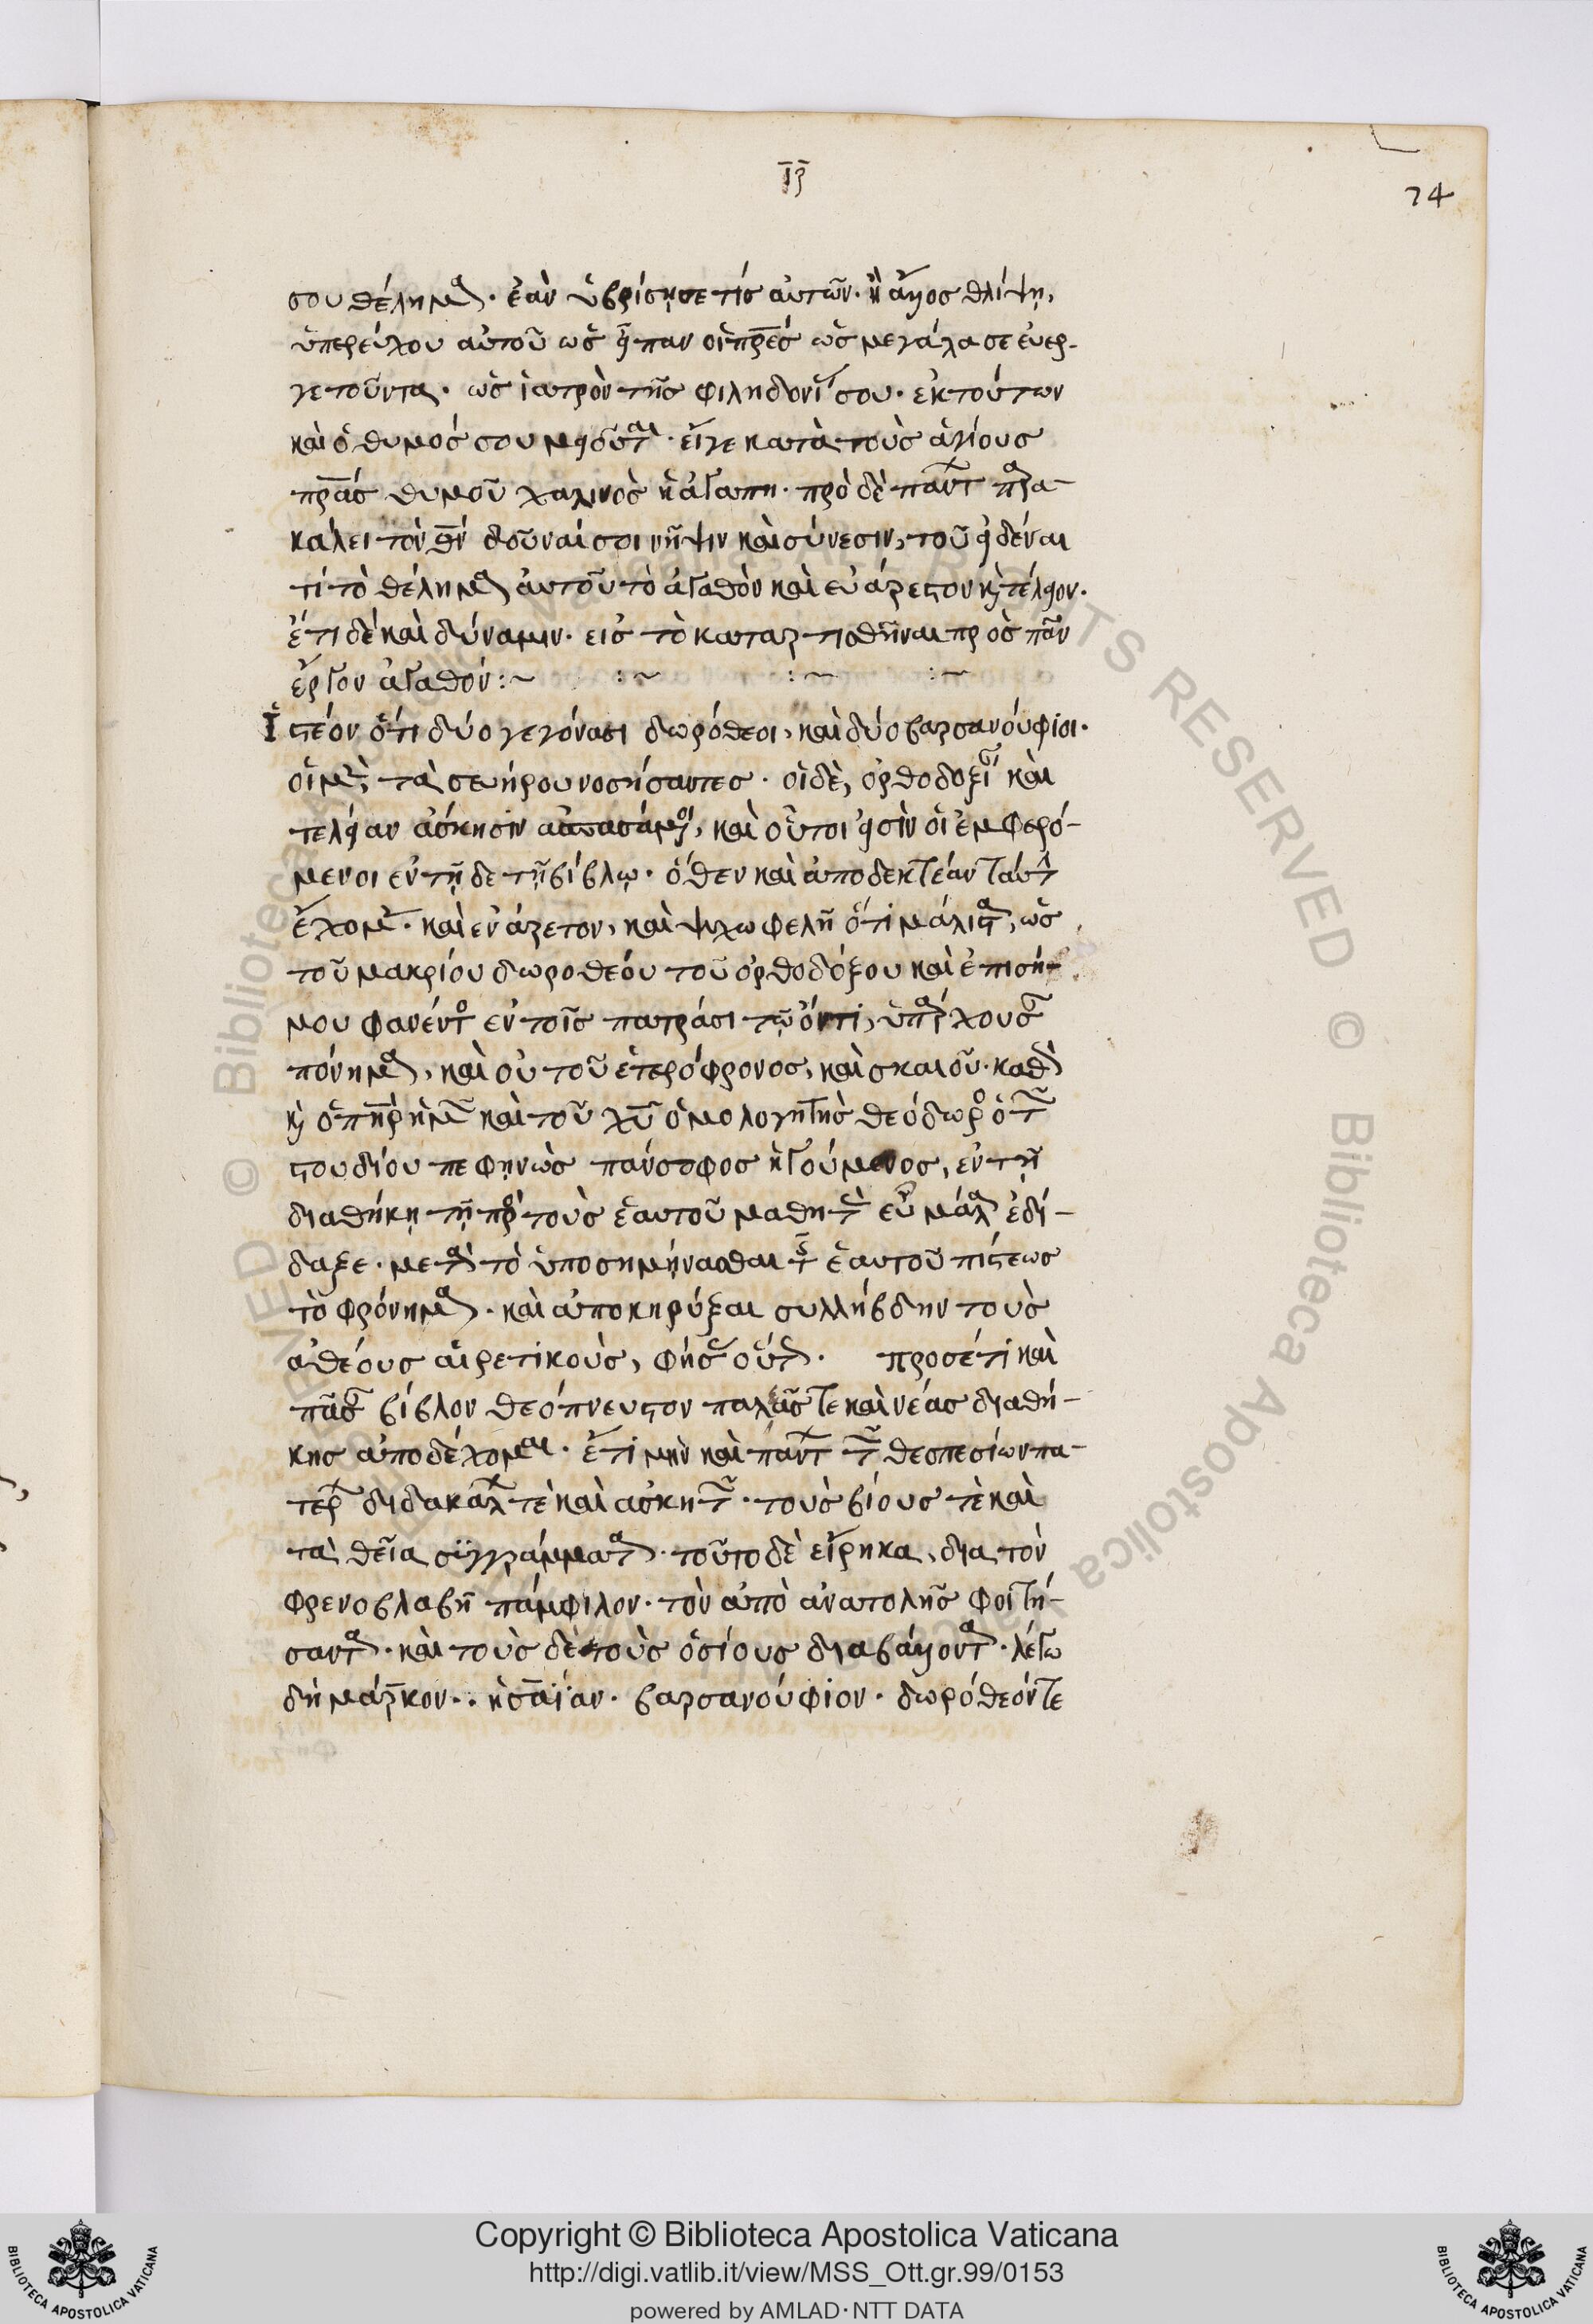 ιζ
74
σου θέλημα. ἐὰν ὑβρίσῃ σε τίς αὐτῶν. ἢ ἄλλος θλίψῃ,
ὑπερεύχου αὐτοῦ ὡς εἶπαν οἱ πρ̅ες ὡς μεγάλα σε εὐερ-
γετοῦντα. ὡς ἰατρὸν τῆς φιληδονίας σου. ἐκ τούτων
καὶ ὁ θυμός σου μειοῦται. εἴγε κατὰ τοὺς ἁγίους
πρ̅ας θυμοῦ χαλινὸς ἡ ἀγάπη. πρὸ δὲ πάντων παρα-
κάλει τὸν θ̅ν δοῦναί σοι νῆψιν καὶ σύνεσιν, τοῦ εἰδέναι
τί τὸ θέλημα αὐτοῦ τὸ ἀγαθὸν καὶ εὐάρεστον καὶ τέλειον.
ἔτι δὲ καὶ δύναμιν. εἰς τὸ καταρτισθῆναι πρὸς πᾶν
ἔργον ἀγαθόν :~ :~ :~ :~
Ἰστέον ὅτι δύο γεγόνασι δωρόθεοι, καὶ δύο βαρσανούφιοι.
οἱ μὲν, τὰ σευήρου νοσήσαντες. οἱ δὲ, ὀρθοδοξίαν καὶ
τελείαν ἄσκησιν ἀσπασάμενοι, καὶ οὗτοι εἰσὶν οἱ ἐμφερό-
μενοι ἐν τῇδε τῇ βίβλῳ. ὅθεν καὶ ἀποδεκτέαν ταύτην
ἔχομεν. καὶ εὐάρετον, καὶ ψυχωφελῆ ὅτι μάλιστα, ὡς
τοῦ μακρίου δωροθέου τοῦ ὀρθοδόξου καὶ ἐπισή-
μου φανέντος ἐν τοῖς πατράσι τῷ ὄντι, ὑπάρχουσαν
πόνημα, καὶ οὐ τοῦ ἑτερόφρονος, καὶ σκαιοῦ. καθὰ
καὶ ὁ π̅η̅ρ ἡμῶν καὶ τοῦ χ̅υ ὁμολογητὴς θεόδωρος ὁ τῶν
στουδίου πεφηνὼς πάνσοφος ἡγούμενος, ἐν τῇ
διαθήκῃ τῇ πρὸς τοὺς ἑαυτοῦ μαθητὰς εὖ μάλα ἐδί-
δαξε. μετὰ τὸ ὑποσημήνασθαι τῆς ἑαυτοῦ πίστεως
τὸ φρόνημα. καὶ ἀποκηρύξαι συλλήβδην τοὺς
ἀθέους αἱρετικοὺς, φήσας οὕτως. προσέτι καὶ
πᾶσαν βίβλον θεόπνευστον παλαιᾶς τε καὶ νέας διαθή-
κης ἀποδέχομαι. ἔτι μὴν καὶ πάντων τῶν θεσπεσίων πα-
τέρων διδακάλων τὲ καὶ ἀσκητῶν. τοὺς βίους τὲ καὶ
τὰ θεῖα συγγράμματα. τοῦτο δὲ εἴρηκα, δια τὸν
φρενοβλαβῆ πάμφιλον. τὸν ἀπὸ ἀνατολῆς φοιτή-
σαντα. καὶ τοὺς δὲ τοὺς ὁσίους διαβάλλοντα. λέγω
δὴ μάρκον.. ἡσαΐαν. βαρσανούφιον. δωρόθεόν τε
Copyright © Biblioteca Apostolica Vaticana
http://digi.vatlib.it/view/MSS_Ott.gr.99/0153
powered by AMLAD·NTT DATA